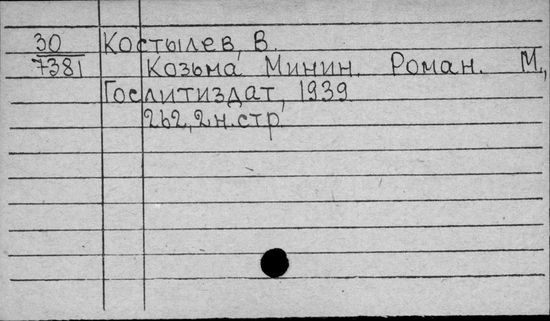 30 Костылев, В.
7381 Козьма Минин. Роман. М.,
Гослитиздат, 1939.
262, 2 н. стр.